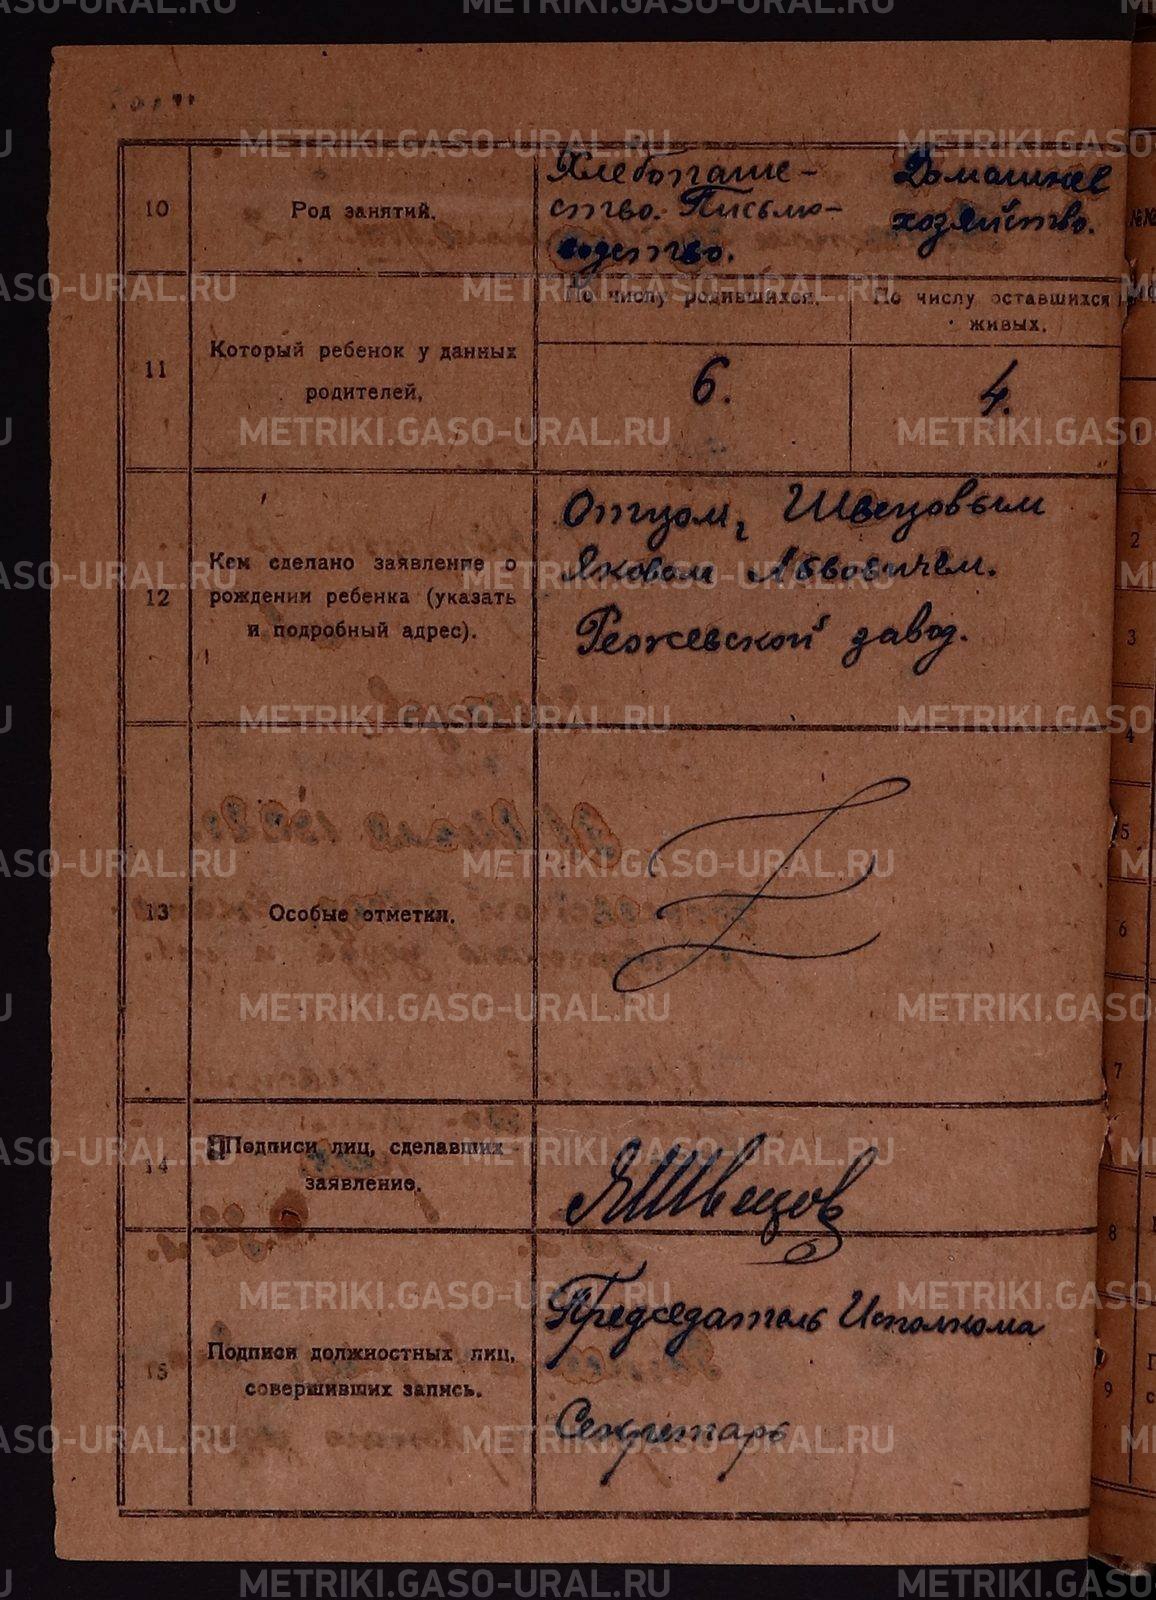 10
Род занятий.
Хлебопаше-
ство. Письмо-
водство.
Домашнее
хозяйство.
11
Который ребенок у данных
родителей.
По числу родившихся.
По числу оставшихся
живых.
6.
4.
12
Кем сделано заявление о
рождении ребенка (указать
и подробный адрес).
Отцом, Швецовым
Яковом Львовичем.
Режевской завод.
13
Особые отметки.
14
Подписи лиц, сделавших
заявление.
ЯШвецов
15
Подписи должностных лиц,
совершивших запись.
Председатель Исполкома
Секретарь
№№
2
3
4
5
6
7
8
9
METRIKI.GASO-URAL.RU